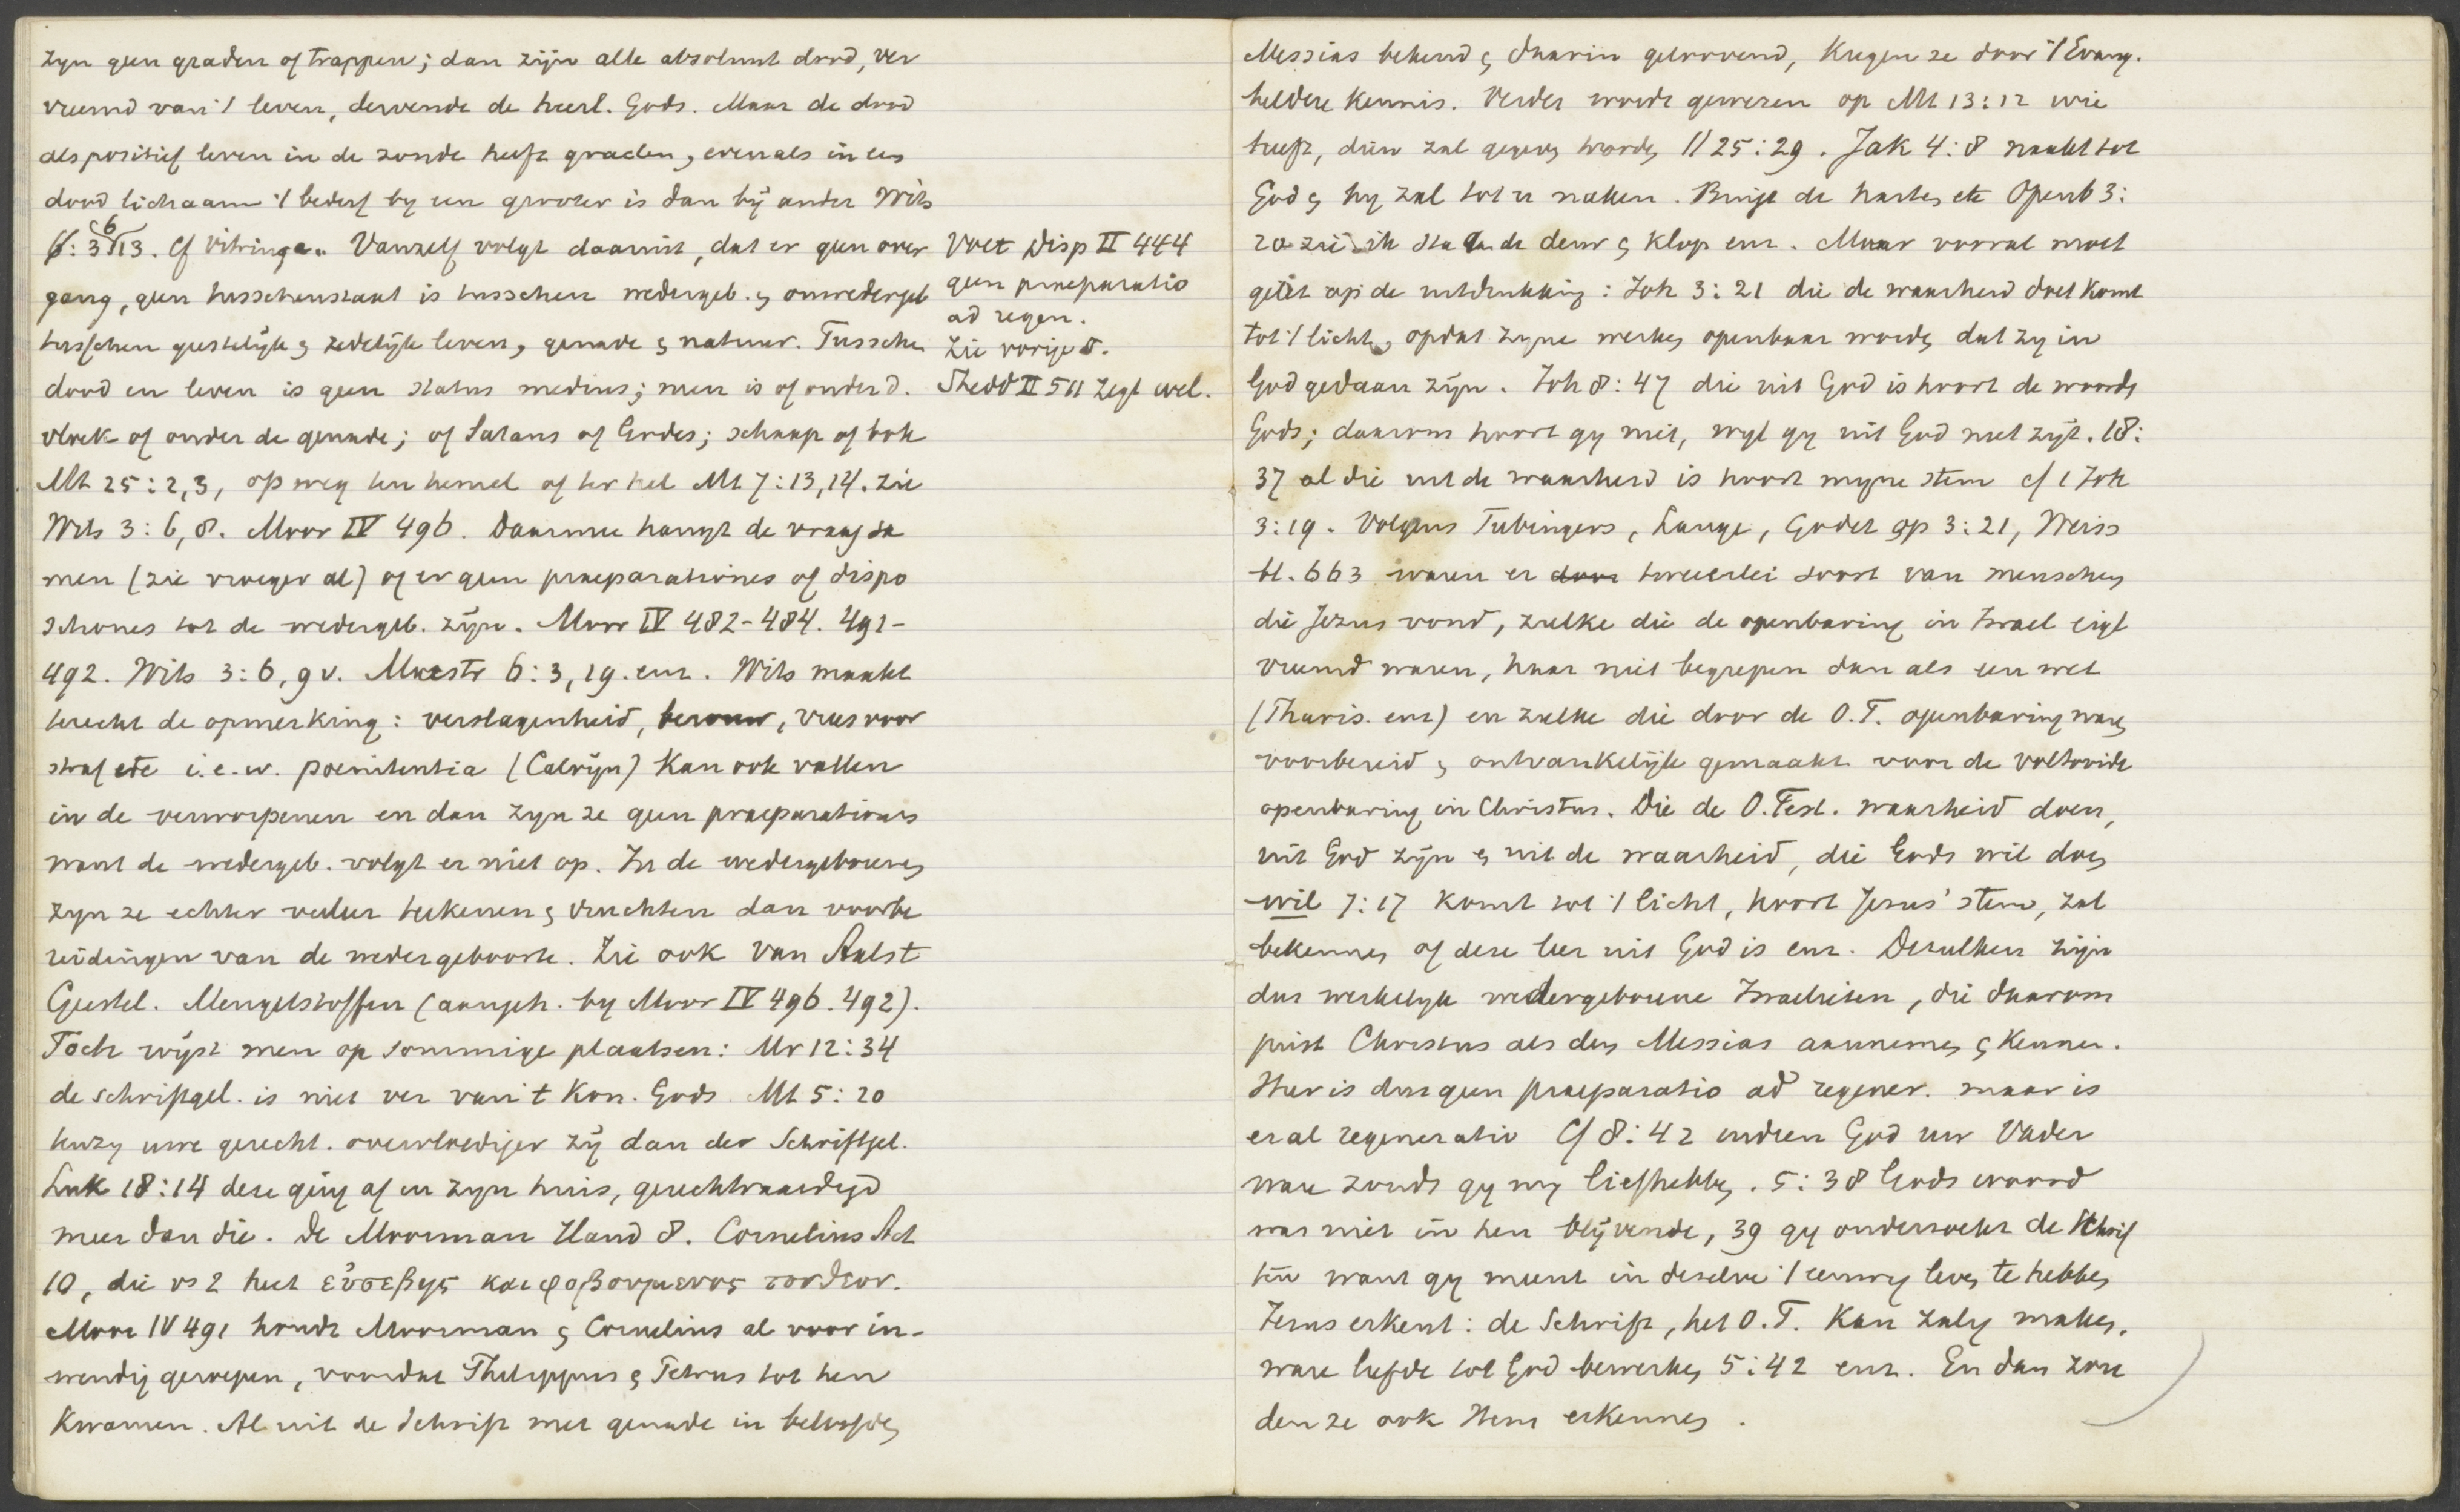 zyn geen graden of trappen; dan zijn alle absoluut dood, ver
vreemd van 't leven, dervende de heerl. Gods. Maar de dood
als positief leven in de zonde heeft graden, evenals in een
dood lichaam 't bederf by een grooter is dan bij ander Wits
6: 3 6 13. Cf Vitringa. Vanzelf volgt daaruit, dat er geen over
gang, geen tusschenstaat is tusschen wedergeb. en onwedergeb
tusschen geestelijk en zedelijk leven, genade en natuur. Tussche
dood en leven is geen status medius; men is of onder d.
vloek of onder de genade; of Satans of Godes; schaap of bok
Mt 25:2,3, op weg ten hemel of ter hel Mt 7:13,14. zie
Wits 3:6,8. Moor IV 496. Daarmee hangt de vraag sa
men (zie vroeger al) of er geen praeparationes of dispo
sitiones tot de wedergeb. zijn. Moor IV 482-484. 491-
492. Wits 3:6,9v. Maestr 6:3,19. enz. Wits maakt
terecht de opmerking: verslagenheid, berouw, vrees voor
straf etc i.e.w. poenitentia (Calvijn) kan ook vallen
in de verworpenen en dan zyn ze geen praeparationes
want de wedergeb. volgt er niet op. In de wedergeborenen
zyn ze echter veeleer teekenen en vruchten dan voorbe
reidingen van de wedergeboorte. Zie ook Van Aalst
Geestel. Mengelstoffen (aangeh. by Moor IV 496. 492).
Toch wijst men op sommige plaatsen: Mr 12:34
de schriftgel. is niet ver van 't Kon. Gods. Mt 5:20
tenzy uwe gerecht. overvloediger zij dan der Schriftgel.
Luk 18:14 deze ging af in zyn huis, gerechtvaardigd
meer dan die. De Moorman Hand 8. Cornelius Act
10, die vs 2 heet εὐσεβης και φοβουμενος τον θεον.
Moor IV 491 houdt Moorman en Cornelius al voor in-
wendig geroepen, voordat Philippus en Petrus tot hen
kwamen. Al uit de Schrift met genade in beloofden
Voet Disp II 444
geen praeparatio
ad regen.
Zie vorige §.
Shedd II 511 zegt wel.
Messias bekend en daarin geloovend, kregen ze door 't Evang.
heldere kennis. Verder wordt gewezen op Mt 13:12 wie
heeft, dien zal gegeven worden // 25:29. Jak 4:8 naakt tot
God en hy zal tot u naken. Buigt de harten etc Openb 3:
20 zie ik sta aan de deur en klop enz. Maar vooral moet
gelet op de uitdrukking: Joh 3:21 die de waarheid doet komt
tot 't licht, opdat zyne werken openbaar worden dat zy in
God gedaan zijn. Joh 8:47 die uit God is hoort de woorden
Gods; daarom hoort gy niet, wyl gy uit God niet zijt. 18:
37 al die uit de waarheid is hoort myne stem cf 1 Joh
3:19. Volgens Tubingers, Lange, Godet op 3:21, Weiss
bl. 663 waren er door tweeerlei soort van menschen
die Jezus vond, zulke die de openbaring in Israel eigl
vreemd waren, haar niet begrepen dan als een wet
(Pharis. enz) en zulke die door de O.T. openbaring waren
voorbereid en ontvankelijk gemaakt voor de voltooide
openbaring in Christus. Die de O.Test. waarheid doen,
uit God zijn en uit de waarheid, die Gods wil doen
wil 7:17 komt tot 't licht, hoort Jesus' stem, zal
bekennen of deze leer uit God is enz. Dezulken zijn
dus werkelyk wedergeborene Israelieten, die daarom
juist Christus als den Messias aannemen en kennen.
Hier is dus geen praeparatio ad regener. maar is
er al regeneratio Cf 8:42 indien God uw Vader
ware zoudt gy my liefhebben. 5:38 Gods woord
was niet in hen blijvende, 39 gy onderzoekt de Schrif
ten want gy meent in dezelve 't eeuwig leven te hebben
Jezus erkent: de Schrift, het O.T. kan zalig maken,
ware liefde tot God bewerken 5:42 enz. En dan zou
den ze ook Hem erkennen.